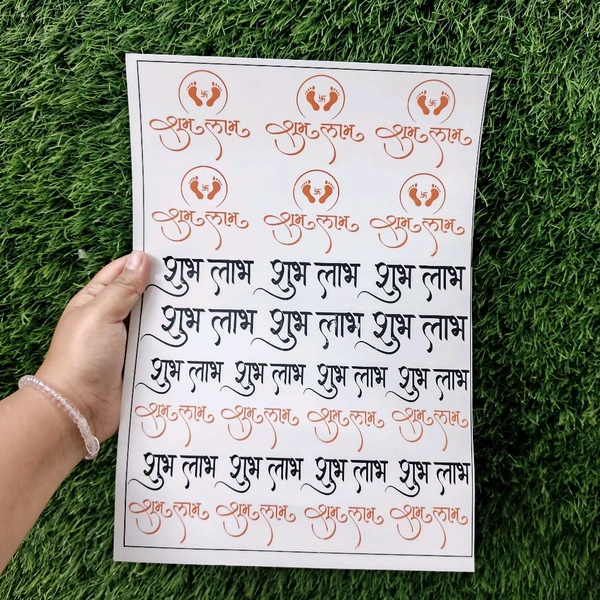 शुभ लाभ शुभ लाभ शुभ लाभ
शुभ लाभ शुभ लाभ शुभ लाभ
शुभ लाभ शुभ लाभ शुभ लाभ
शुभ लाभ शुभ लाभ शुभ लाभ
शुभ लाभ शुभ लाभ शुभ लाभ शुभ लाभ
शुभ लाभ शुभ लाभ शुभ लाभ शुभ लाभ
शुभ लाभ शुभ लाभ शुभ लाभ शुभ लाभ
शुभ लाभ शुभ लाभ शुभ लाभ शुभ लाभ